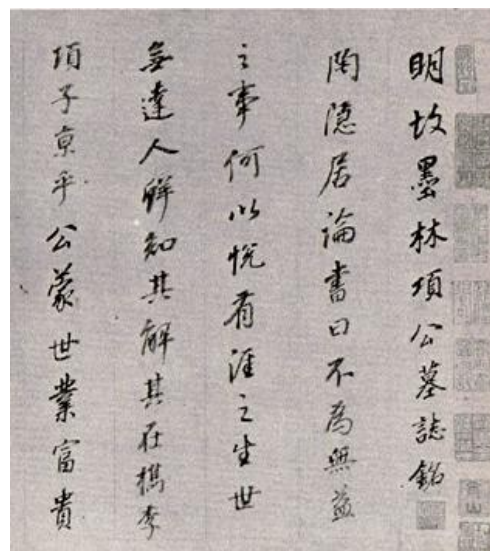 明故墨林項公墓誌銘
陶隱居論書曰不為無益
之事何以悅有涯之生世
無達人解知其解其在檇李
項子京乎公蒙世業富貴